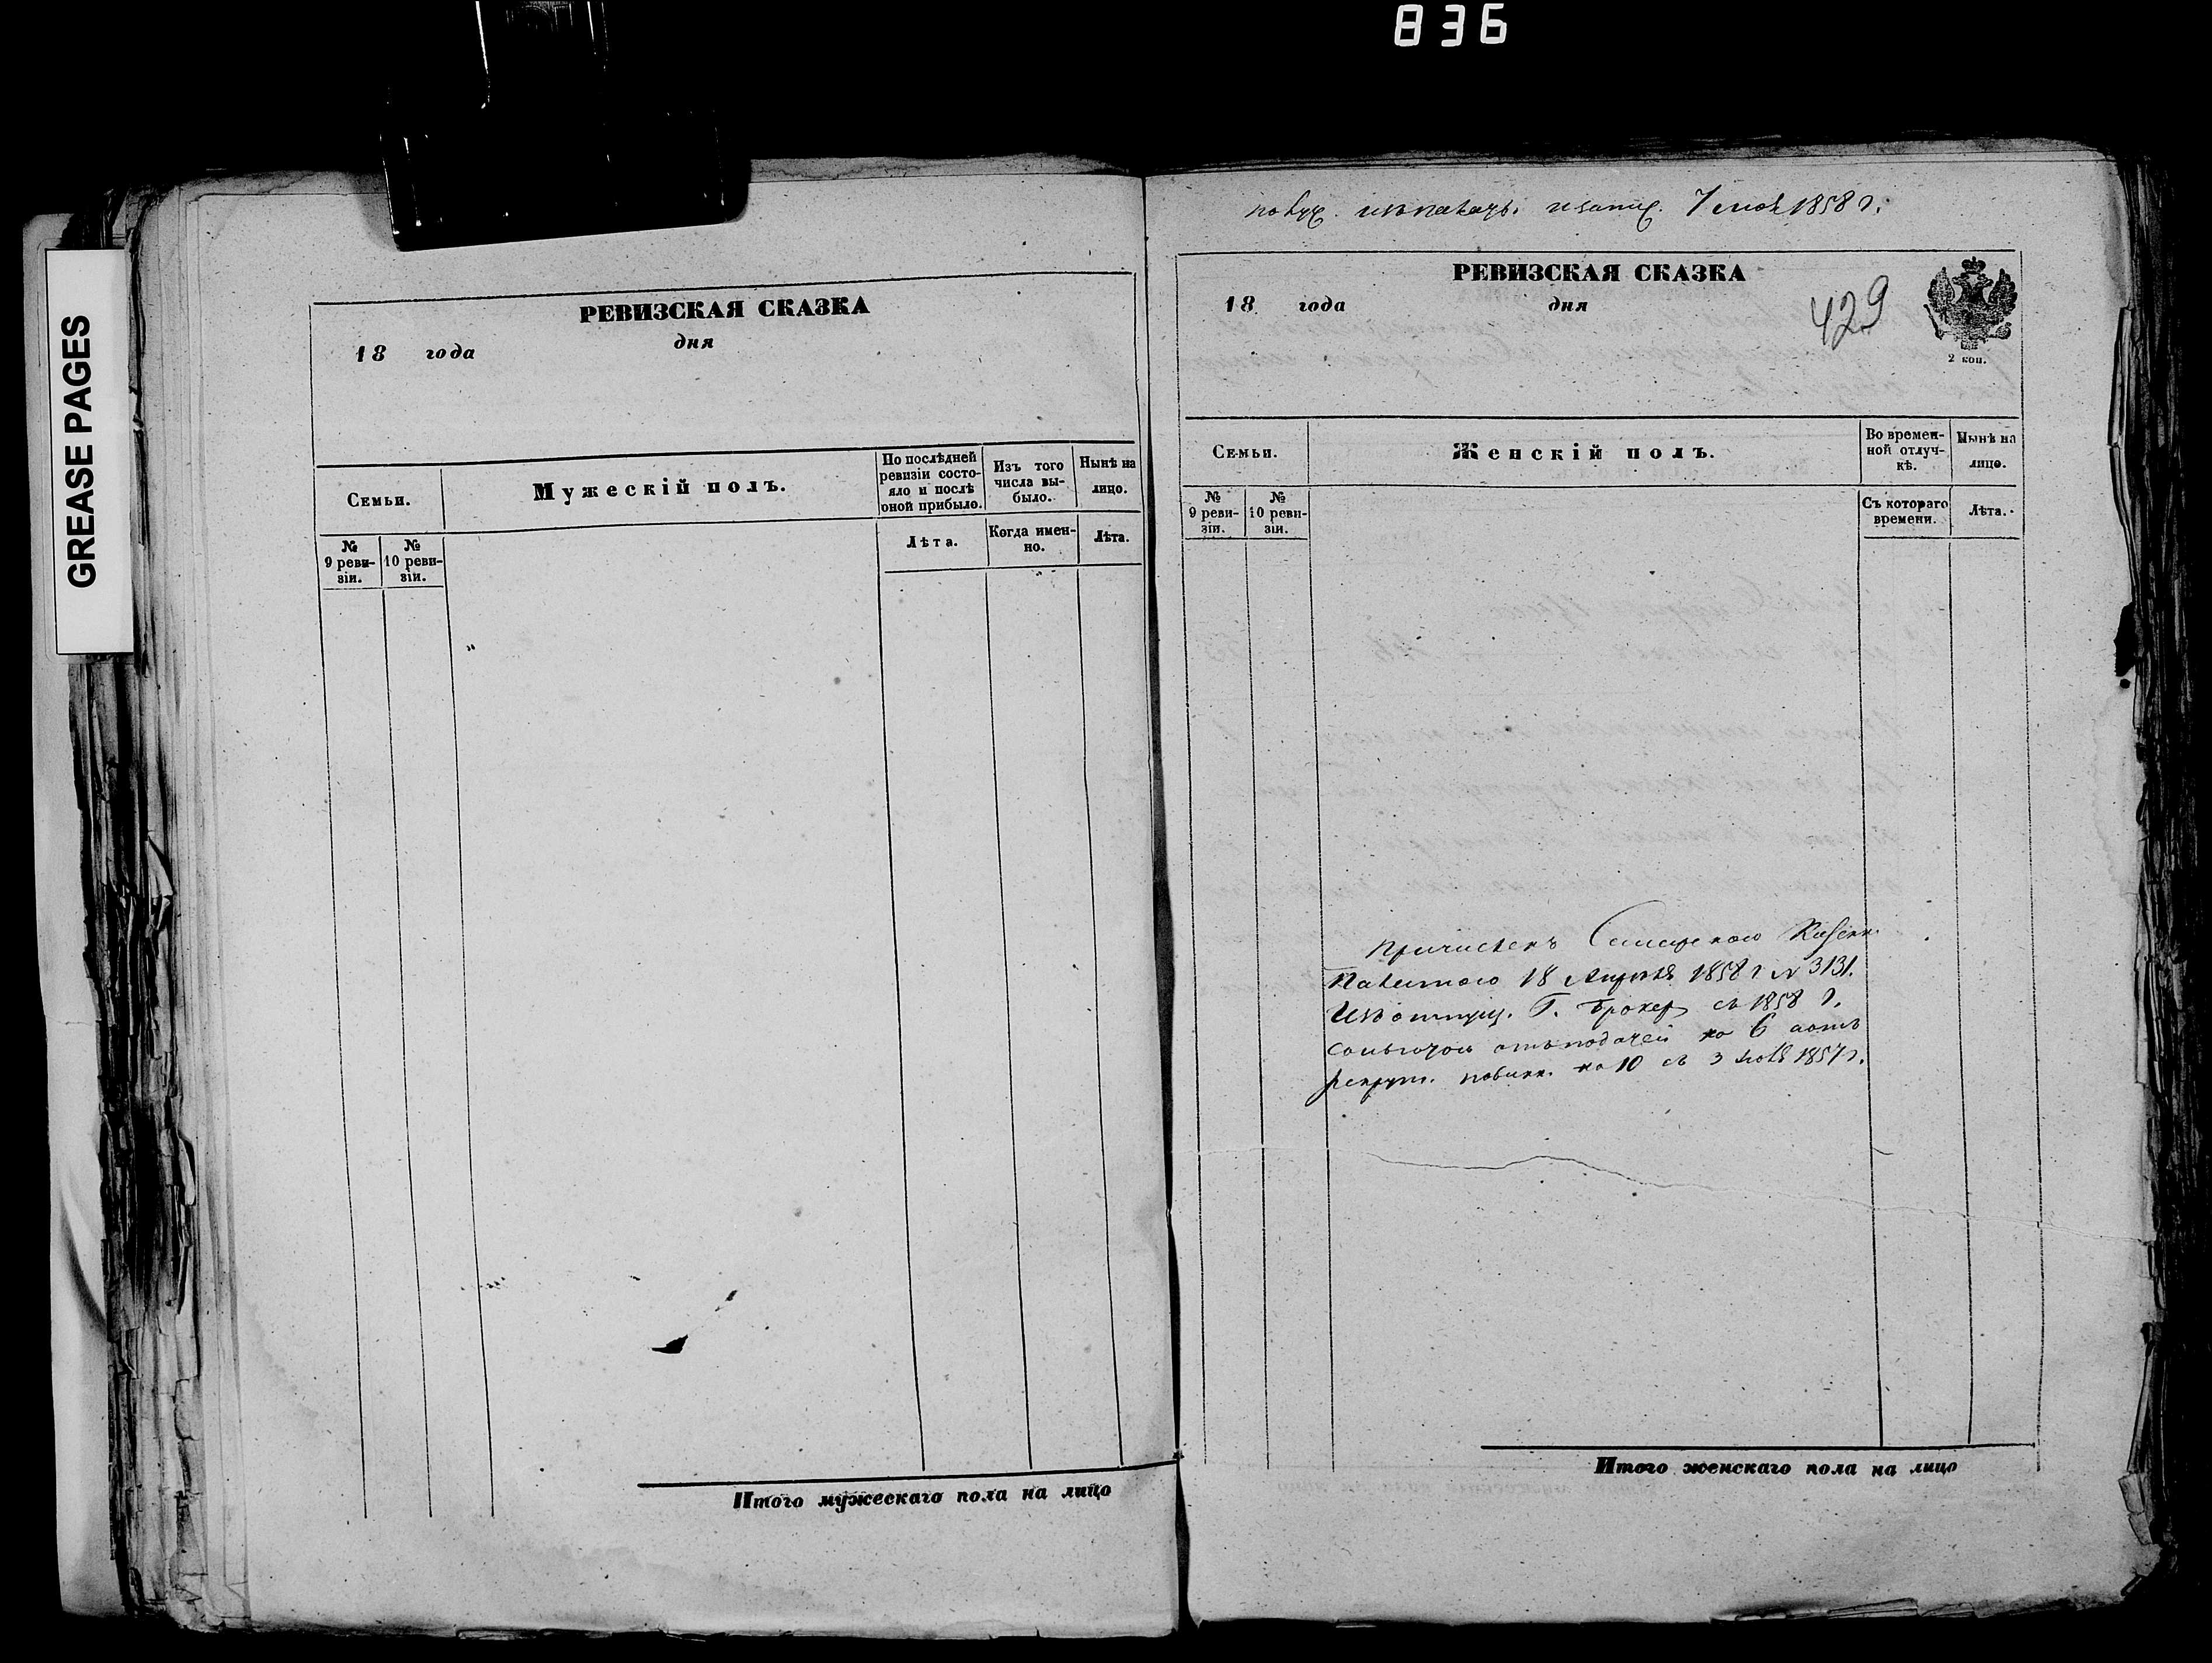 836
GREASE PAGES
РЕВИЗСКАЯ СКАЗКА
18 года дня
Семьи.
Мужескій полъ.
По послѣдней ревизіи состояло и послѣ оной прибыло.
Изъ того числа выбыло.
Нынѣ на лицо.
№ 9 ревизіи.
№ 10 ревизіи.
Лѣта.
Когда именно.
Лѣта.
Итого мужескаго пола на лицо
7 1858 г.
РЕВИЗСКАЯ СКАЗКА
18 года дня
429
2 коп.
Семьи.
Женскій полъ.
Во временной отлучкѣ.
Нынѣ на лицо.
№ 9 ревизіи.
№ 10 ревизіи.
Съ котораго времени.
Лѣта.
Причисленъ Самарскою Казенн.
Палатою 18 Апрѣля 1858 г № 3131.
Г. съ 1858 г.
отъ податей на 6 лѣтъ
рекрут. повинн. на 10 съ 3 1857 г.
Итого женскаго пола на лицо